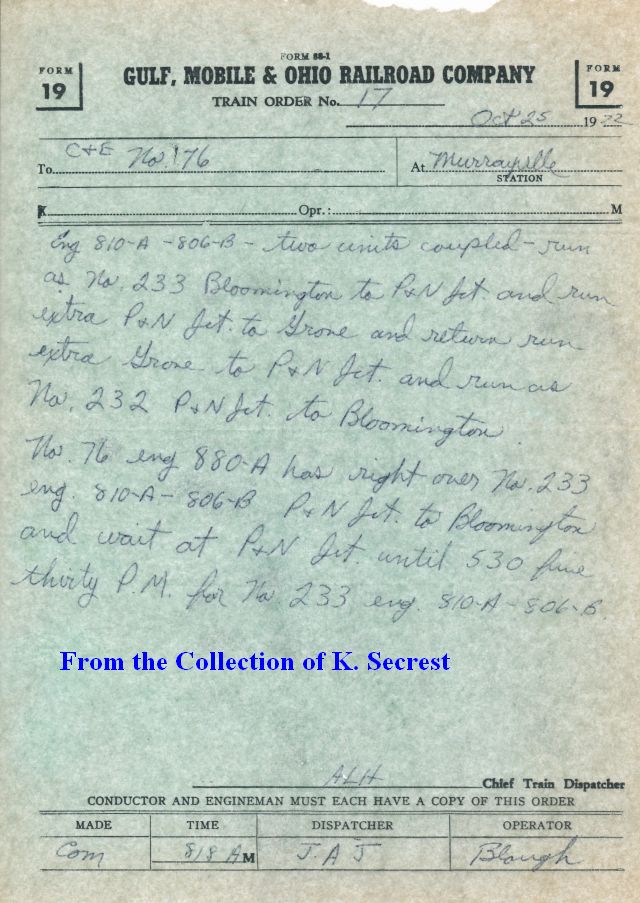 FORM 88-1
FORM 19
GULF, MOBILE & OHIO RAILROAD COMPANY
FORM 19
TRAIN ORDER No. 17
Oct 25 1972
To C+E No. 76 At Murrayville
STATION
X Opr.: M
Eng 810-A - 806-B - two units coupled - run
as No. 233 Bloomington to P+N Jct. and run
extra P+N Jct. to Grove and return run
extra Grove to P+N Jct. and run as
No. 232 P+N Jct. to Bloomington
No. 76 eng 880-A has right over No. 233
eng. 810-A - 806-B P+N Jct. to Bloomington
and wait at P+N Jct. until 530 five
thirty P.M. for No. 233 eng. 810-A - 806-B.
From the Collection of K. Secrest
ALH Chief Train Dispatcher
CONDUCTOR AND ENGINEMAN MUST EACH HAVE A COPY OF THIS ORDER
MADE TIME DISPATCHER OPERATOR
Com 818 A M J.A.J Blough